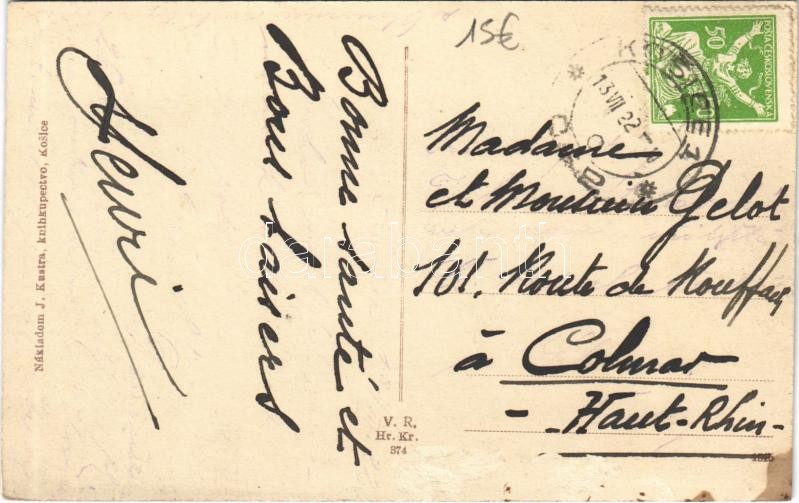 15€
50
POŠTA ČESKOSLOVENSKÁ
KOŠICE 1
13 VII 22
Bonne santé et
Bons baisers
Henri
Madame
et Monsieur Gelot
101. Route de Rouffach
à Colmar
- Haut-Rhin -
Nákladom J. Kustra, knihkupectvo, Košice
V. R.
Hr. Kr.
374
darabanth